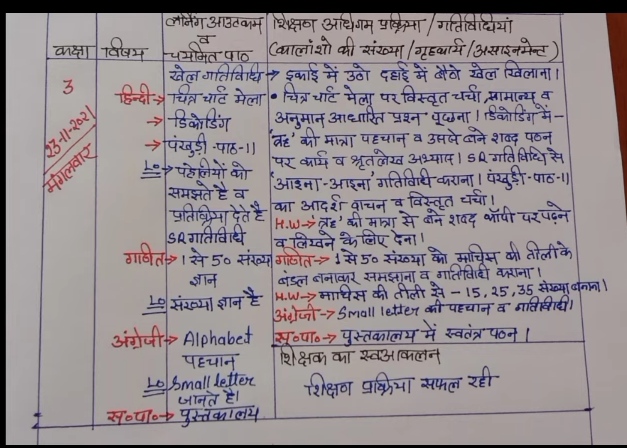 कक्षा विषय लर्निंग आउटकम व चयनित पाठ शिक्षण अधिगम प्रक्रिया / गतिविधियां
(कालांशो की संख्या / गृहकार्य / असाइनमेन्ट)
3
23-11-2021
मंगलवार
खेल गतिविधि → इकाई में उठो दहाई में बैठो खेल खिलाना।
हिन्दी → चित्र चार्ट मेला
→ डिकोडिंग
→ पंखुड़ी-पाठ-11
LO → पहेलियों को
समझते है व
प्रतिक्रिया देते है
SR गतिविधि
• चित्र चार्ट मेला पर विस्तृत चर्चा, सामान्य व
अनुमान आधारित प्रश्न पूछना। डिकोडिंग में-
'ऋ' की मात्रा पहचान व उससे बने शब्द पठन
पर कार्य व श्रुतलेख अभ्यास। SR गतिविधि से
'आइना-आइना' गतिविधि कराना। पंखुड़ी-पाठ-11
का आदर्श वाचन व विस्तृत चर्चा।
H.W → 'ऋ' की मात्रा से बने शब्द कॉपी पर पढ़ने
व लिखने के लिए देना।
गणित → 1 से 50 संख्या
ज्ञान
LO संख्या ज्ञान है
गणित → 1 से 50 संख्या को माचिस की तीली के
बंडल बनाकर समझाना व गतिविधि कराना।
H.W → माचिस की तीली से - 15, 25, 35 संख्या बनाना।
अंग्रेजी → Alphabet
पहचान
LO Small letter
जानते है।
अंग्रेजी → Small letter की पहचान व गतिविधि।
स०पा० → पुस्तकालय
स०पा० → पुस्तकालय में स्वतंत्र पठन।
शिक्षक का स्वआकलन
शिक्षण प्रक्रिया सफल रही